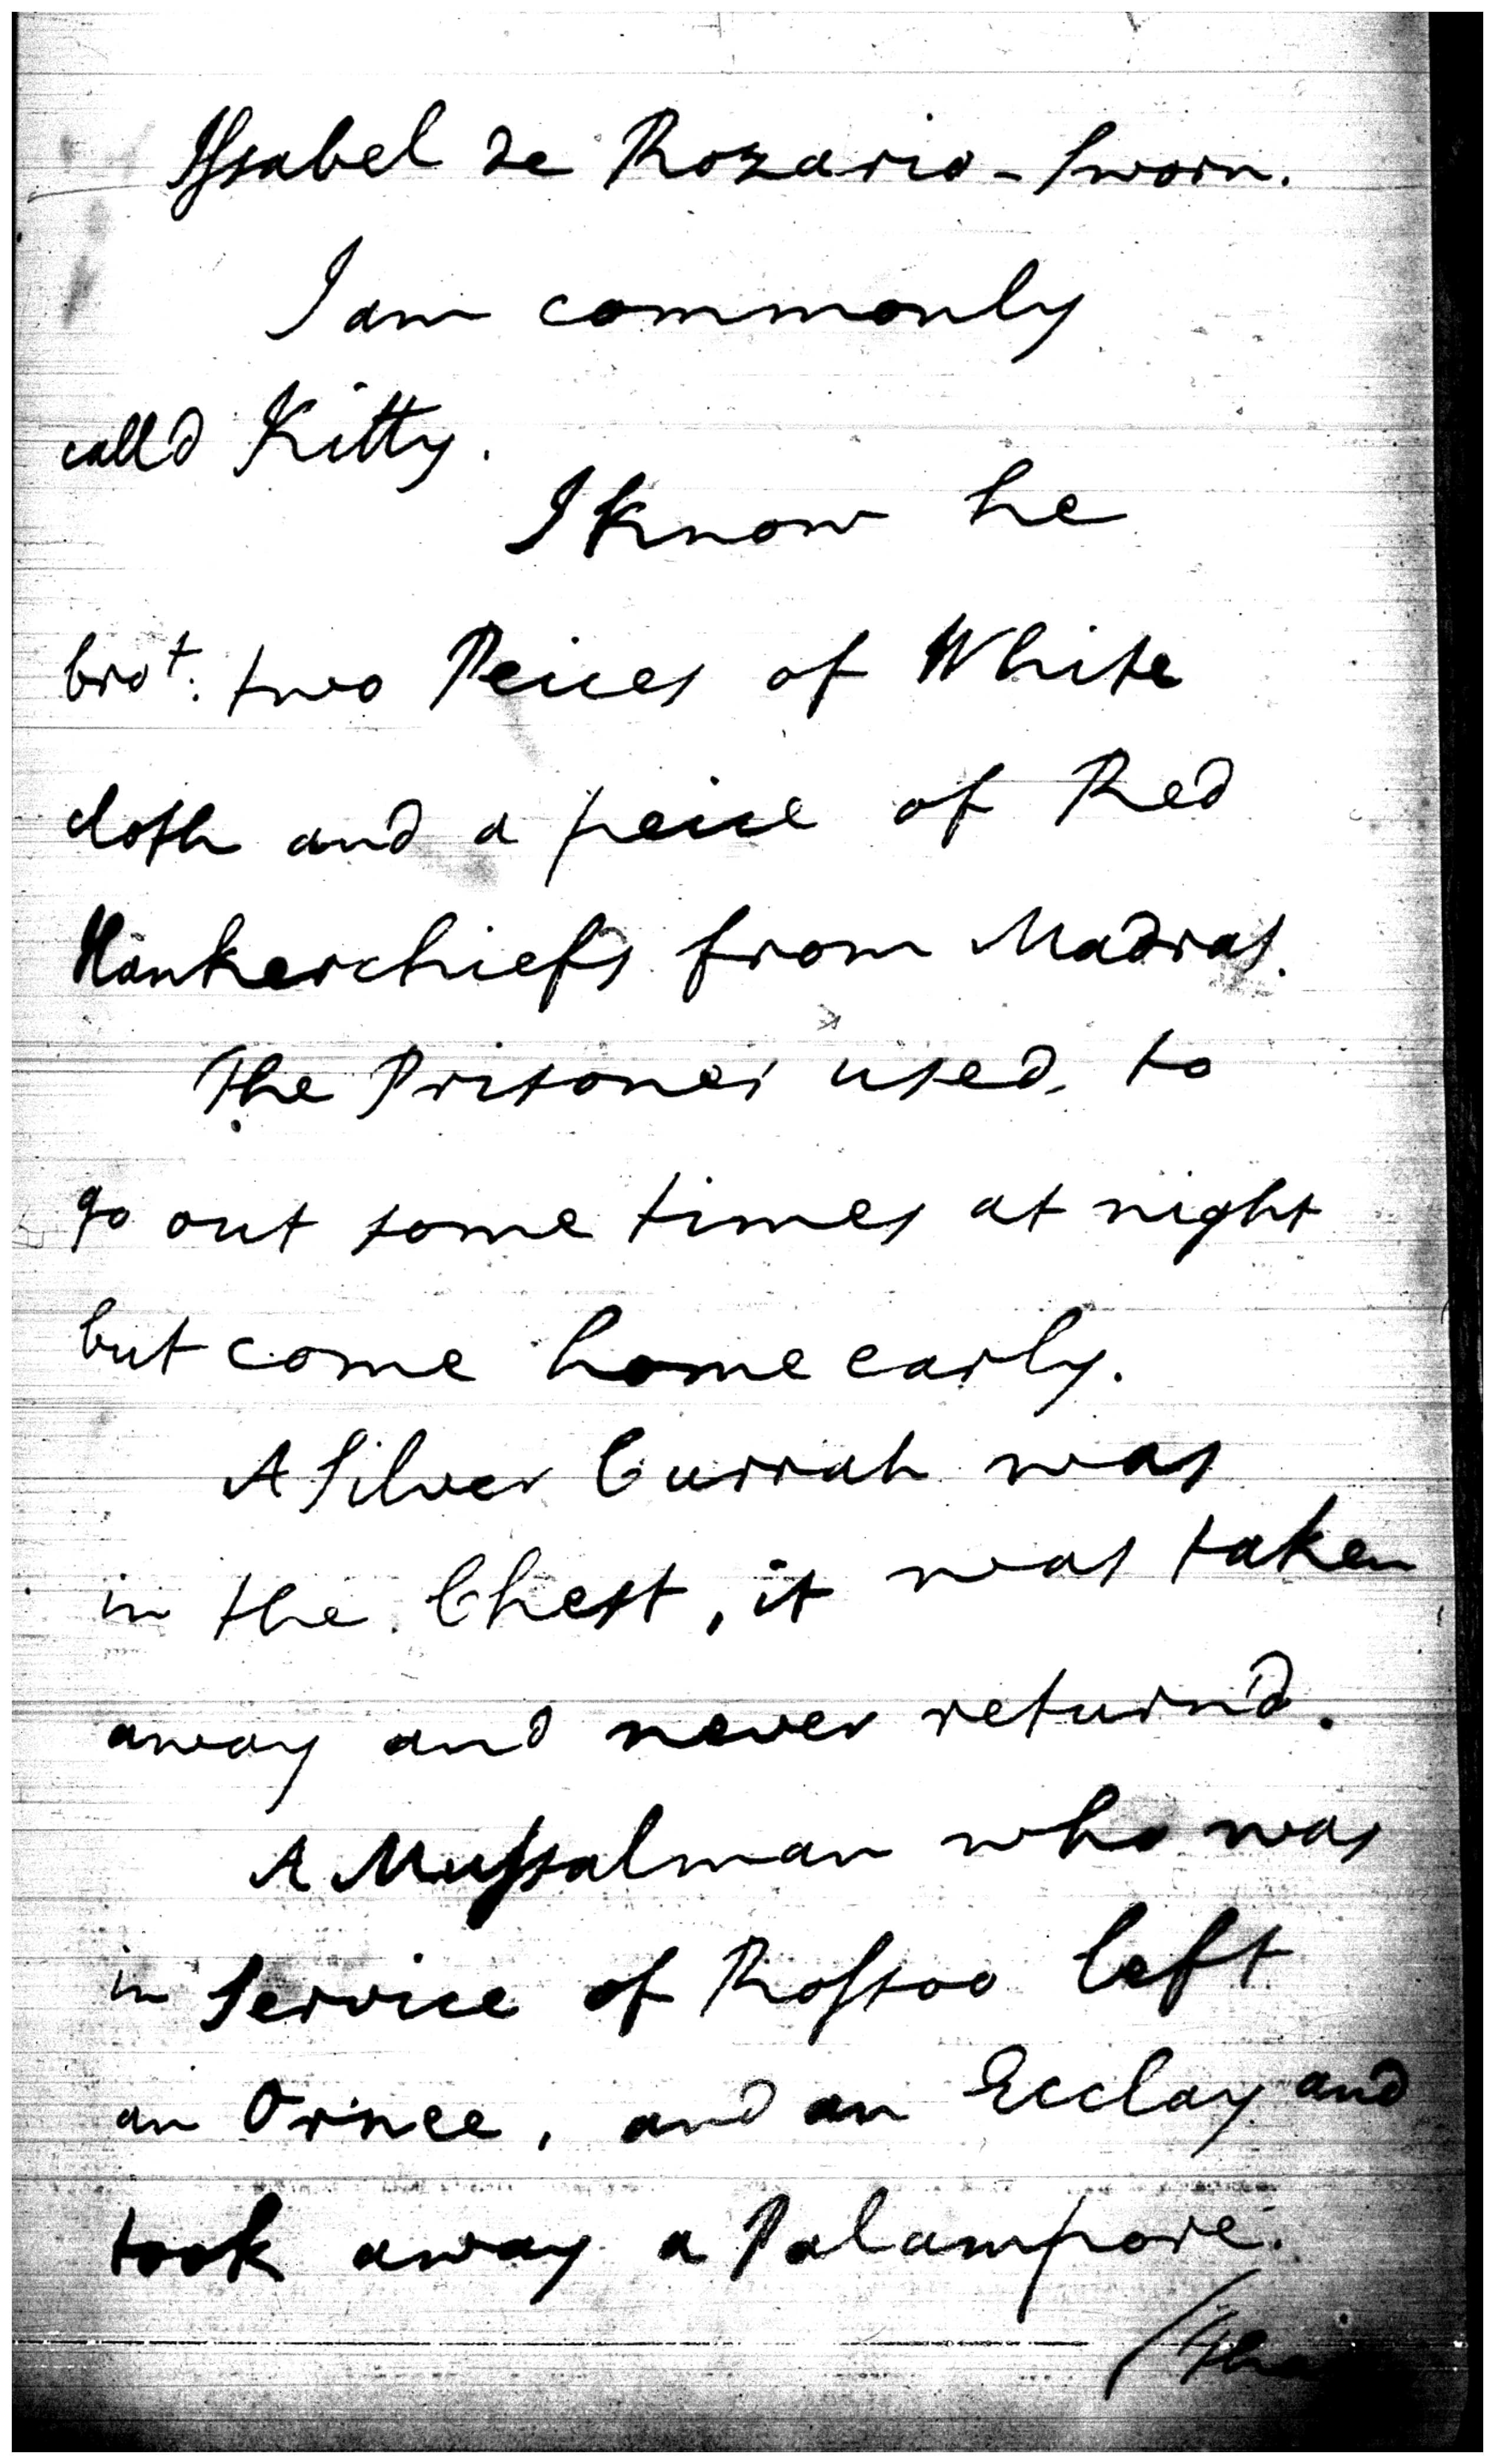 Yssabel de Rozario - Sworn.
I am commonly
call'd Kitty.
I know he
bro.t two Peices of White
cloth and a peice of Red
Hankerchiefs from Madras.
The Prisoner used to
go out some times at night
but come home early.
A Silver Currah was
in the Chest, it was taken
away and never return'd.
A Mussalman who was
in Service of Rossoo left
an Ornee, and an Ecclay and
took away a Palampore.